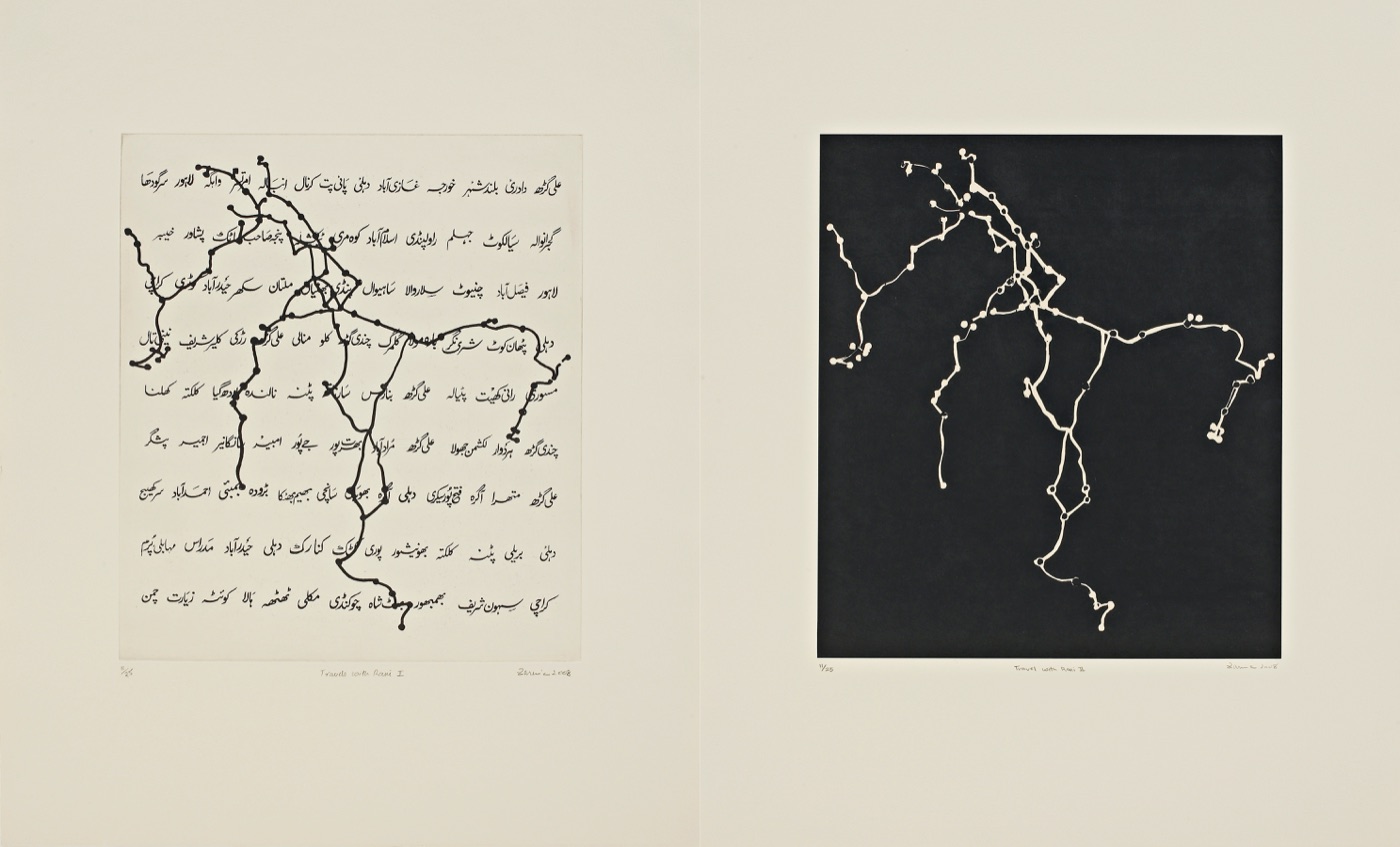 علی گڑھ دادری بلندشہر خورجہ غازی آباد دہلی پانی پت کرنال انبالہ امرتسر واہگہ لاہور سرگودھا
گجرانوالہ سیالکوٹ جہلم راولپنڈی اسلام آباد کوہ مری پنجہ صاحب اٹک پشاور خیبر
لاہور فیصل آباد چنیوٹ سلاروالا ساہیوال ملتان سکھر حیدرآباد کوٹری کراچی
دہلی پٹھان کوٹ شری نگر گلمرگ چندی گڑھ کلو منالی علی گڑھ رڑکی کلیر شریف نینی تال
مسوری رانی کھیت پٹیالہ علی گڑھ بنارس سارناتھ پٹنہ نالندہ بودھ گیا کلکتہ کھلنا
چندی گڑھ ہردوار لکشمن جھولا علی گڑھ مُرادآباد بھرت پور جے پور امبیر سانگانیر اجمیر پشگر
علی گڑھ متھرا آگرہ فتح پور سیکری دہلی آگرہ بھوپال سانچی بھیم بھٹکا بڑودہ بمبئی احمدآباد سرکھیج
دہلی بریلی پٹنہ کلکتہ بھونیشور پوری کٹک کنارک دہلی حیدرآباد مدراس مہابلی پُرم
کراچی سہون شریف بھمبھور شاہ چوکنڈی مکلی ٹھٹھہ ہالا کوئٹہ زیارت چمن
Travels with Rani I
Zarina 2008
11/25
Travel with Rani II
Zarina 2008